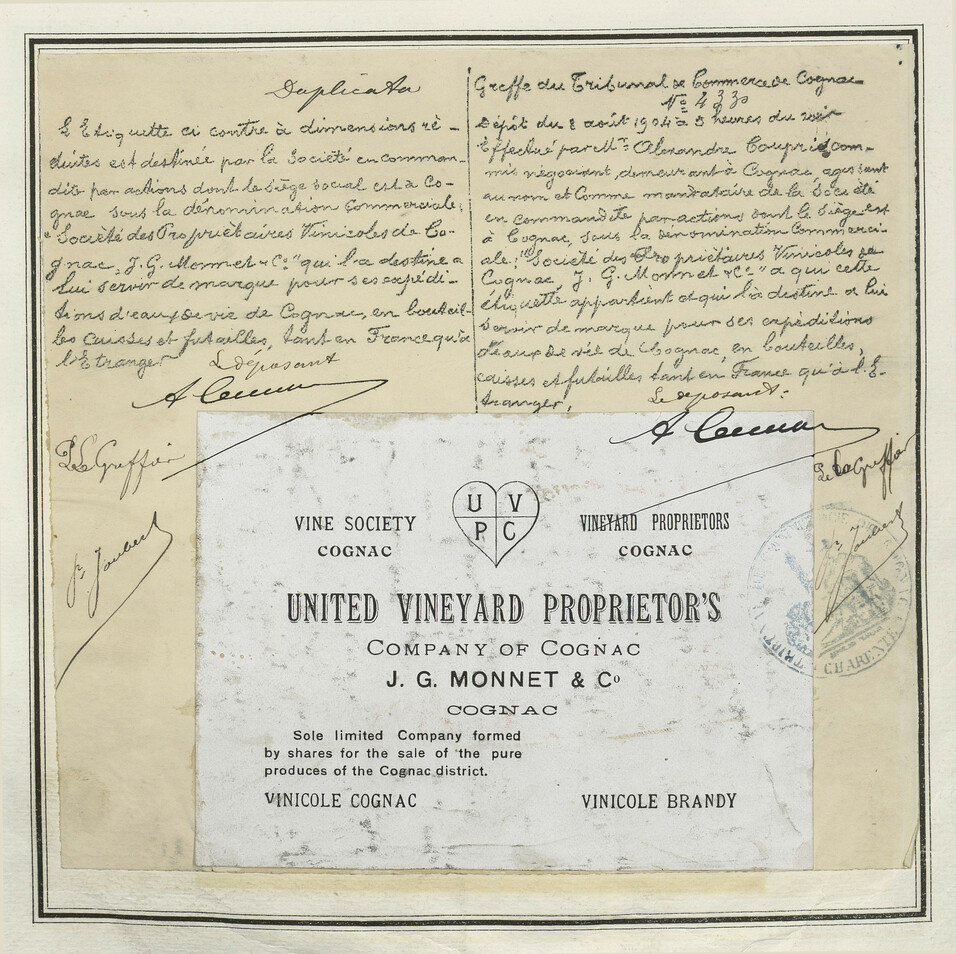 Duplicata
L'Etiquette ci contre à dimensions ré-
duites est destinée par la Société en comman-
dite par actions dont le siège social est à Co-
gnac sous la dénomination Commerciale,
"Société des Propriètaires Vinicoles de Co-
gnac, J. G. Monnet & Co" qui l'a destine a
lui servir de marque pour ses expédi-
tions d'eaux de vie de Cognac, en bouteil-
les caisses et futailles, tant en France qu'à
l'Etranger
Le déposant
Le Greffier
Jr Joubert
Greffe du Tribunal de Commerce de Cognac
No 4330
Dépôt du 8 août 1904 à 5 heures du soir
Effectué par Mr Alexandre Couprie com-
mis négociant demeurant à Cognac agissant
au nom et comme mandataire de la Société
en commandite par actions dont le siège est
à Cognac, sous la dénomination Commerci-
ale: "Société des Propriétaires Vinicoles de
Cognac J. G. Monnet & Co" a qui cette
étiquette appartient et qui l'a destine a lui
servir de marque pour ses expéditions
d'eaux de vie de Cognac, en bouteilles,
caisses et futailles tant en France qu'à l'E-
tranger,
Le déposant:
Le Greffier
Jr Joubert
CHARENTE
U V
P C
VINE SOCIETY
COGNAC
VINEYARD PROPRIETORS
COGNAC
UNITED VINEYARD PROPRIETOR'S
COMPANY OF COGNAC
J. G. MONNET & Co
COGNAC
Sole limited Company formed
by shares for the sale of the pure
produces of the Cognac district.
VINICOLE COGNAC
VINICOLE BRANDY